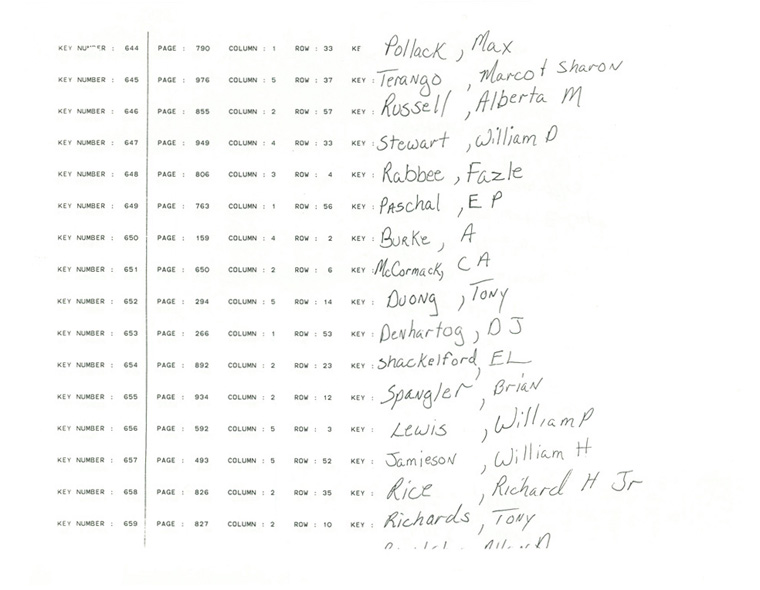 KEY NUMBER : 644 PAGE : 790 COLUMN : 1 ROW : 33 KE Pollack , Max
KEY NUMBER : 645 PAGE : 976 COLUMN : 5 ROW : 37 KEY : Terango , Marco + Sharon
KEY NUMBER : 646 PAGE : 855 COLUMN : 2 ROW : 57 KEY : Russell , Alberta M
KEY NUMBER : 647 PAGE : 949 COLUMN : 4 ROW : 33 KEY : Stewart , William D
KEY NUMBER : 648 PAGE : 806 COLUMN : 3 ROW : 4 KEY : Rabbee , Fazle
KEY NUMBER : 649 PAGE : 763 COLUMN : 1 ROW : 56 KEY : Paschal , E P
KEY NUMBER : 650 PAGE : 159 COLUMN : 4 ROW : 2 KEY : Burke , A
KEY NUMBER : 651 PAGE : 650 COLUMN : 2 ROW : 6 KEY : McCormack, C A
KEY NUMBER : 652 PAGE : 294 COLUMN : 5 ROW : 14 KEY : Duong , Tony
KEY NUMBER : 653 PAGE : 266 COLUMN : 1 ROW : 53 KEY : Denhartog , D J
KEY NUMBER : 654 PAGE : 892 COLUMN : 2 ROW : 23 KEY : Shackelford, EL
KEY NUMBER : 655 PAGE : 934 COLUMN : 2 ROW : 12 KEY : Spangler , Brian
KEY NUMBER : 656 PAGE : 592 COLUMN : 5 ROW : 3 KEY : Lewis , William P
KEY NUMBER : 657 PAGE : 493 COLUMN : 5 ROW : 52 KEY : Jamieson , William H
KEY NUMBER : 658 PAGE : 826 COLUMN : 2 ROW : 35 KEY : Rice , Richard H Jr
KEY NUMBER : 659 PAGE : 827 COLUMN : 2 ROW : 10 KEY : Richards , Tony